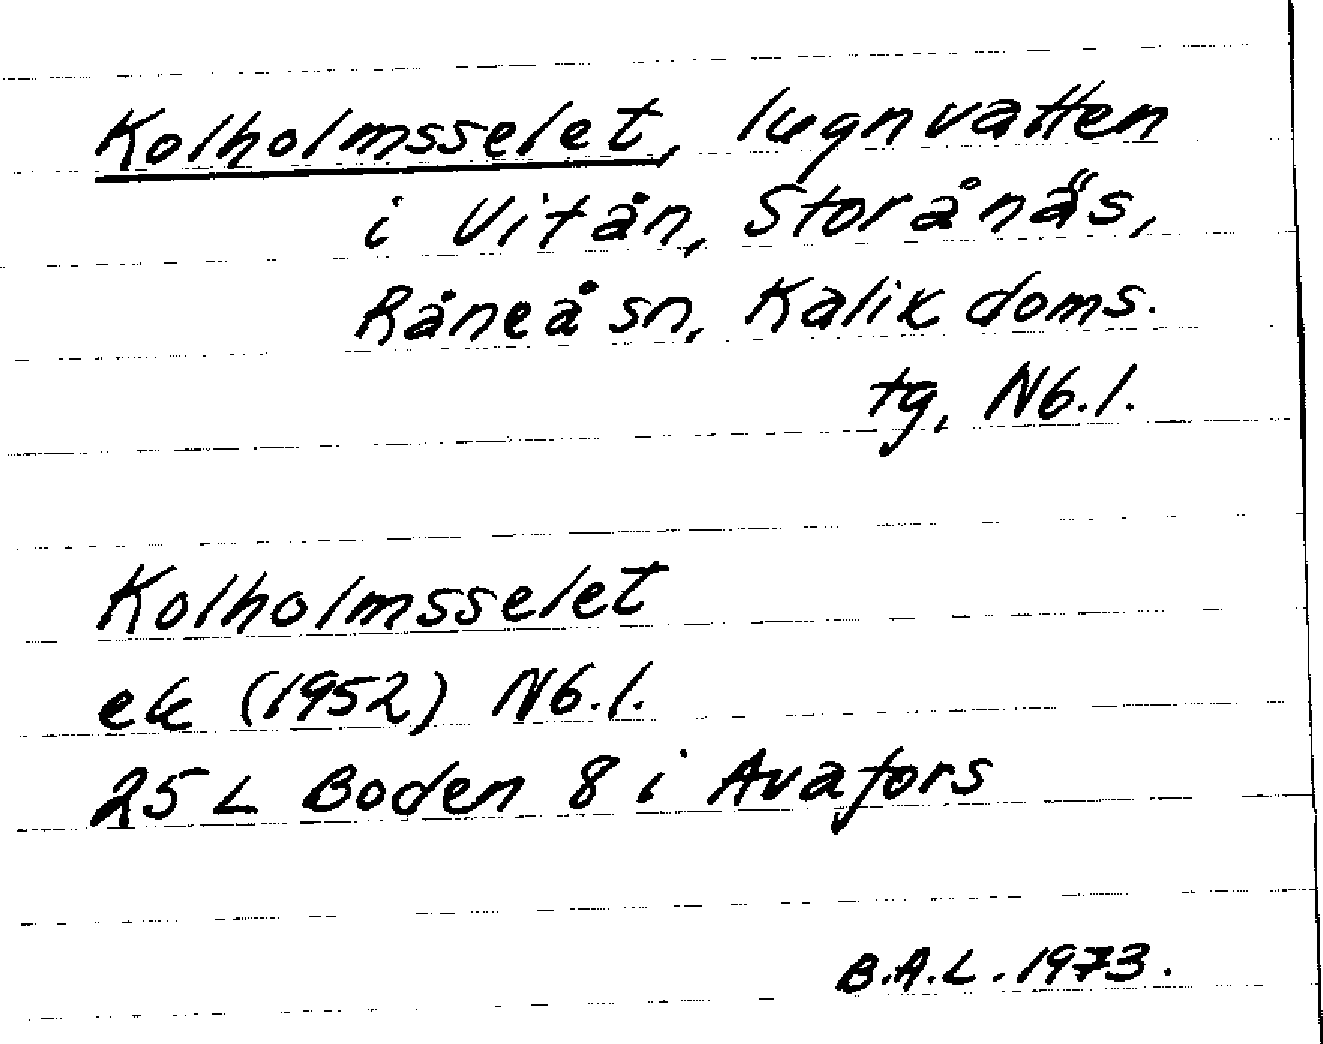 Kolholmsselet, lugnvatten
i Vitån, Storånäs,
Råneå sn, Kalix doms.
tg, Nb.l.
Kolholmsselet
ek (1952) Nb.l.
25 L Boden 8 i Avafors
B.A.L. 1973.